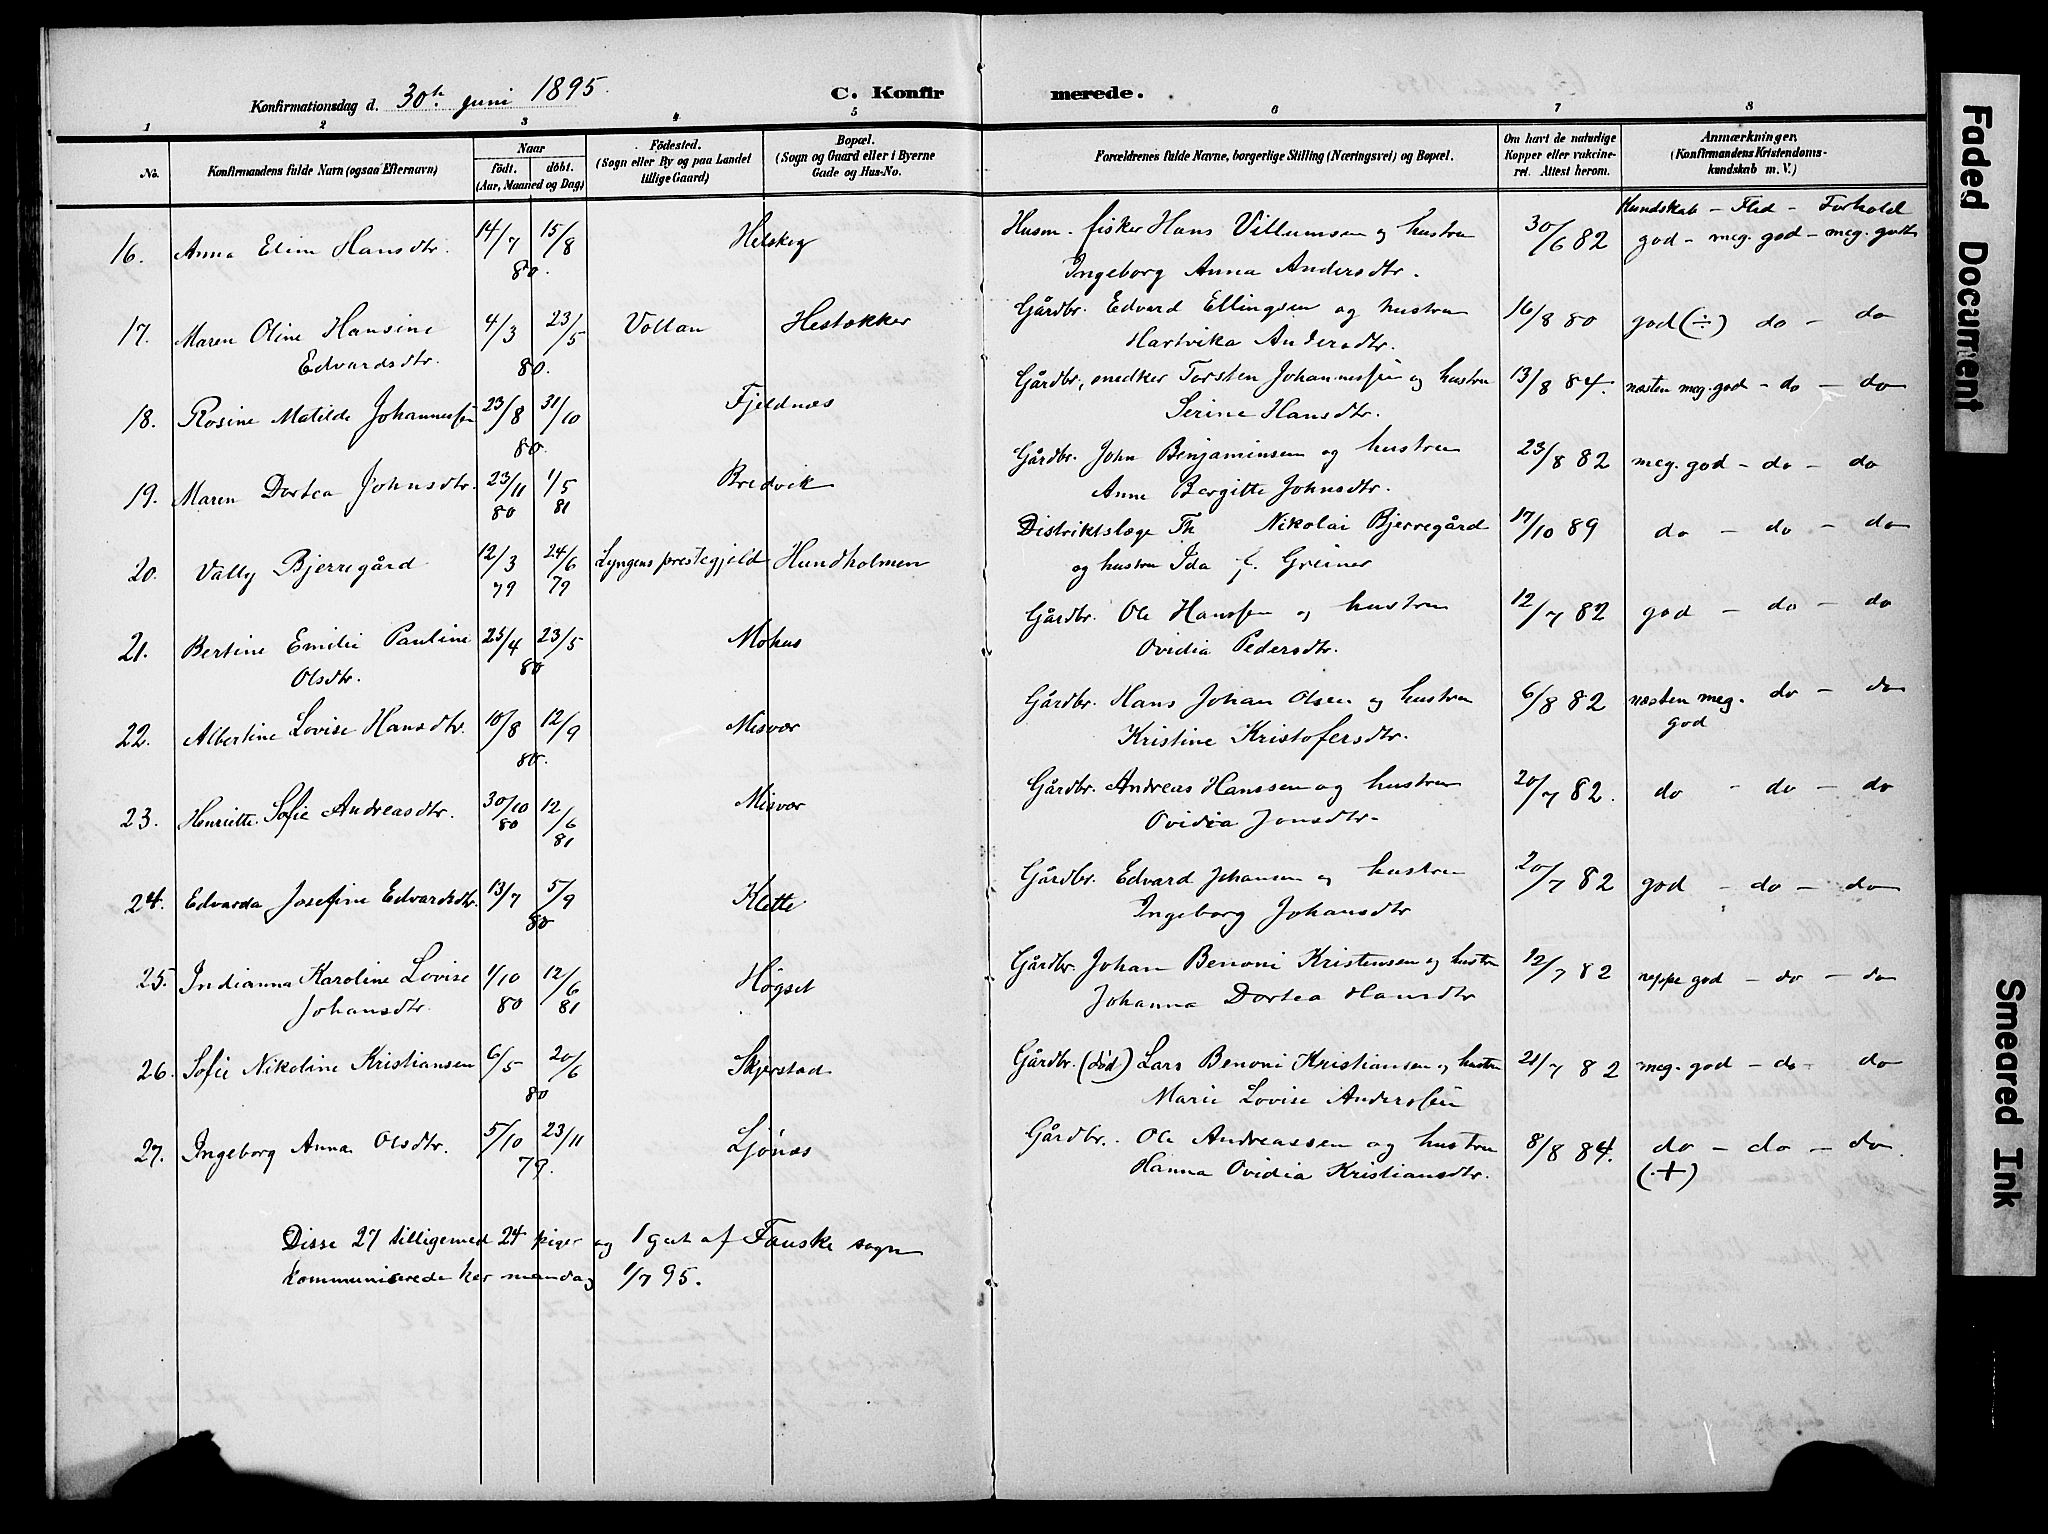 Konfirmationsdag d. 30te juni 1895.
C. Konfirmerede.
1 2 3 4 5 6 7 8
No.
Konfirmandens fulde Navn (ogsaa Efternavn)
Naar
født. døbt.
(Aar, Maaned og Dag)
Fødested.
(Sogn eller By og paa Landet
tillige Gaard)
Bopæl.
(Sogn og Gaard eller i Byerne
Gade og Hus-No.
Forældrenes fulde Navne, borgerlige Stilling (Næringsvei) og Bopæl.
Om havt de naturlige
Kopper eller vakcine-
ret. Attest herom.
Anmærkninger,
(Konfirmandens Kristendoms-
kundskab m. V.)
Kundskab – Flid – Forhold
16. Anna Eline Hansdtr. 14/7 15/8 Husm. fisker Hans Villumsen og hustru 30/6 82 god – meg. god – meg. godt
80. Ingeborg Anna Andersdtr.
17. Maren Oline Hansine 4/3 23/5 Vollan Hestokker Gårdbr. Edvard Ellingsen og hustru 16/8 80 god (÷) do – do
Edvardsdtr. 80. Hartvika Andersdtr.
18. Rosine Matilde Johannessen 23/8 31/10 Fjeldnæs Gårdbr, snedker Torsten Johannessen og hustru 13/8 84. næsten meg. god – do – do
80. Serine Hansdtr.
19. Maren Dortea Johnsdtr. 23/11 1/5 Bredvik Gårdbr. John Benjaminsen og hustru 23/8 82 meg. god – do – do
80 81 Anne Bergitte Johnsdtr.
20. Vally Bjerregård 12/3 24/6 Lyngens prestegjeld Hundholmen Distriktslæge Th Nikolai Bjerregård 17/10 89 do – do – do
79 79 og hustru Ida f. Greiner
21. Bertine Emilie Pauline 25/4 23/5 Mohus Gårdbr. Ole Hanssen og hustru 12/7 82 god – do – do
Olsdtr. 80 Ovidia Pedersdtr.
22. Albertine Lovise Hansdtr. 10/8 12/9 Misvær Gårdbr. Hans Johan Olsen og hustru 6/8 82 næsten meg. do – do
80. Kristine Kristofersdtr. god
23. Henriette Sofie Andreasdtr. 30/10 12/6 Misvær Gårdbr. Andreas Hanssen og hustru 20/7 82. do – do – do
80 81 Ovidia Jonsdtr.
24. Edvarda Josefine Edvardsdtr. 13/7 5/9 Klette Gårdbr. Edvard Johansen og hustru 20/7 82 god – do – do
80 Ingeborg Johansdtr
25. Indianna Karoline Lovise 1/10 12/6 Høgset Gårdbr. Johan Benoni Kristensen og hustru 12/7 82 neppe god – do – do
Johansdtr. 80 81 Johanna Dortea Hansdtr
26. Sofie Nikoline Kristiansen 6/5 20/6 Skjerstad Gårdbr. (død) Lars Benoni Kristiansen og hustru 21/7 82 meg. god – do – do
80 Marie Lovise Anderssen
27. Ingeborg Anna Olsdtr. 5/10 23/11 Ljønæs Gårdbr. Ole Andreassen og hustru 8/8 84. do – do – do.
79. Hanna Ovidia Kristiansdtr. (+)
Disse 27 tilligemed 24 piger og 1 gut af Fauske sogn
kommunicerede her mandag 1/7 95.
Faded Document
Smeared Ink